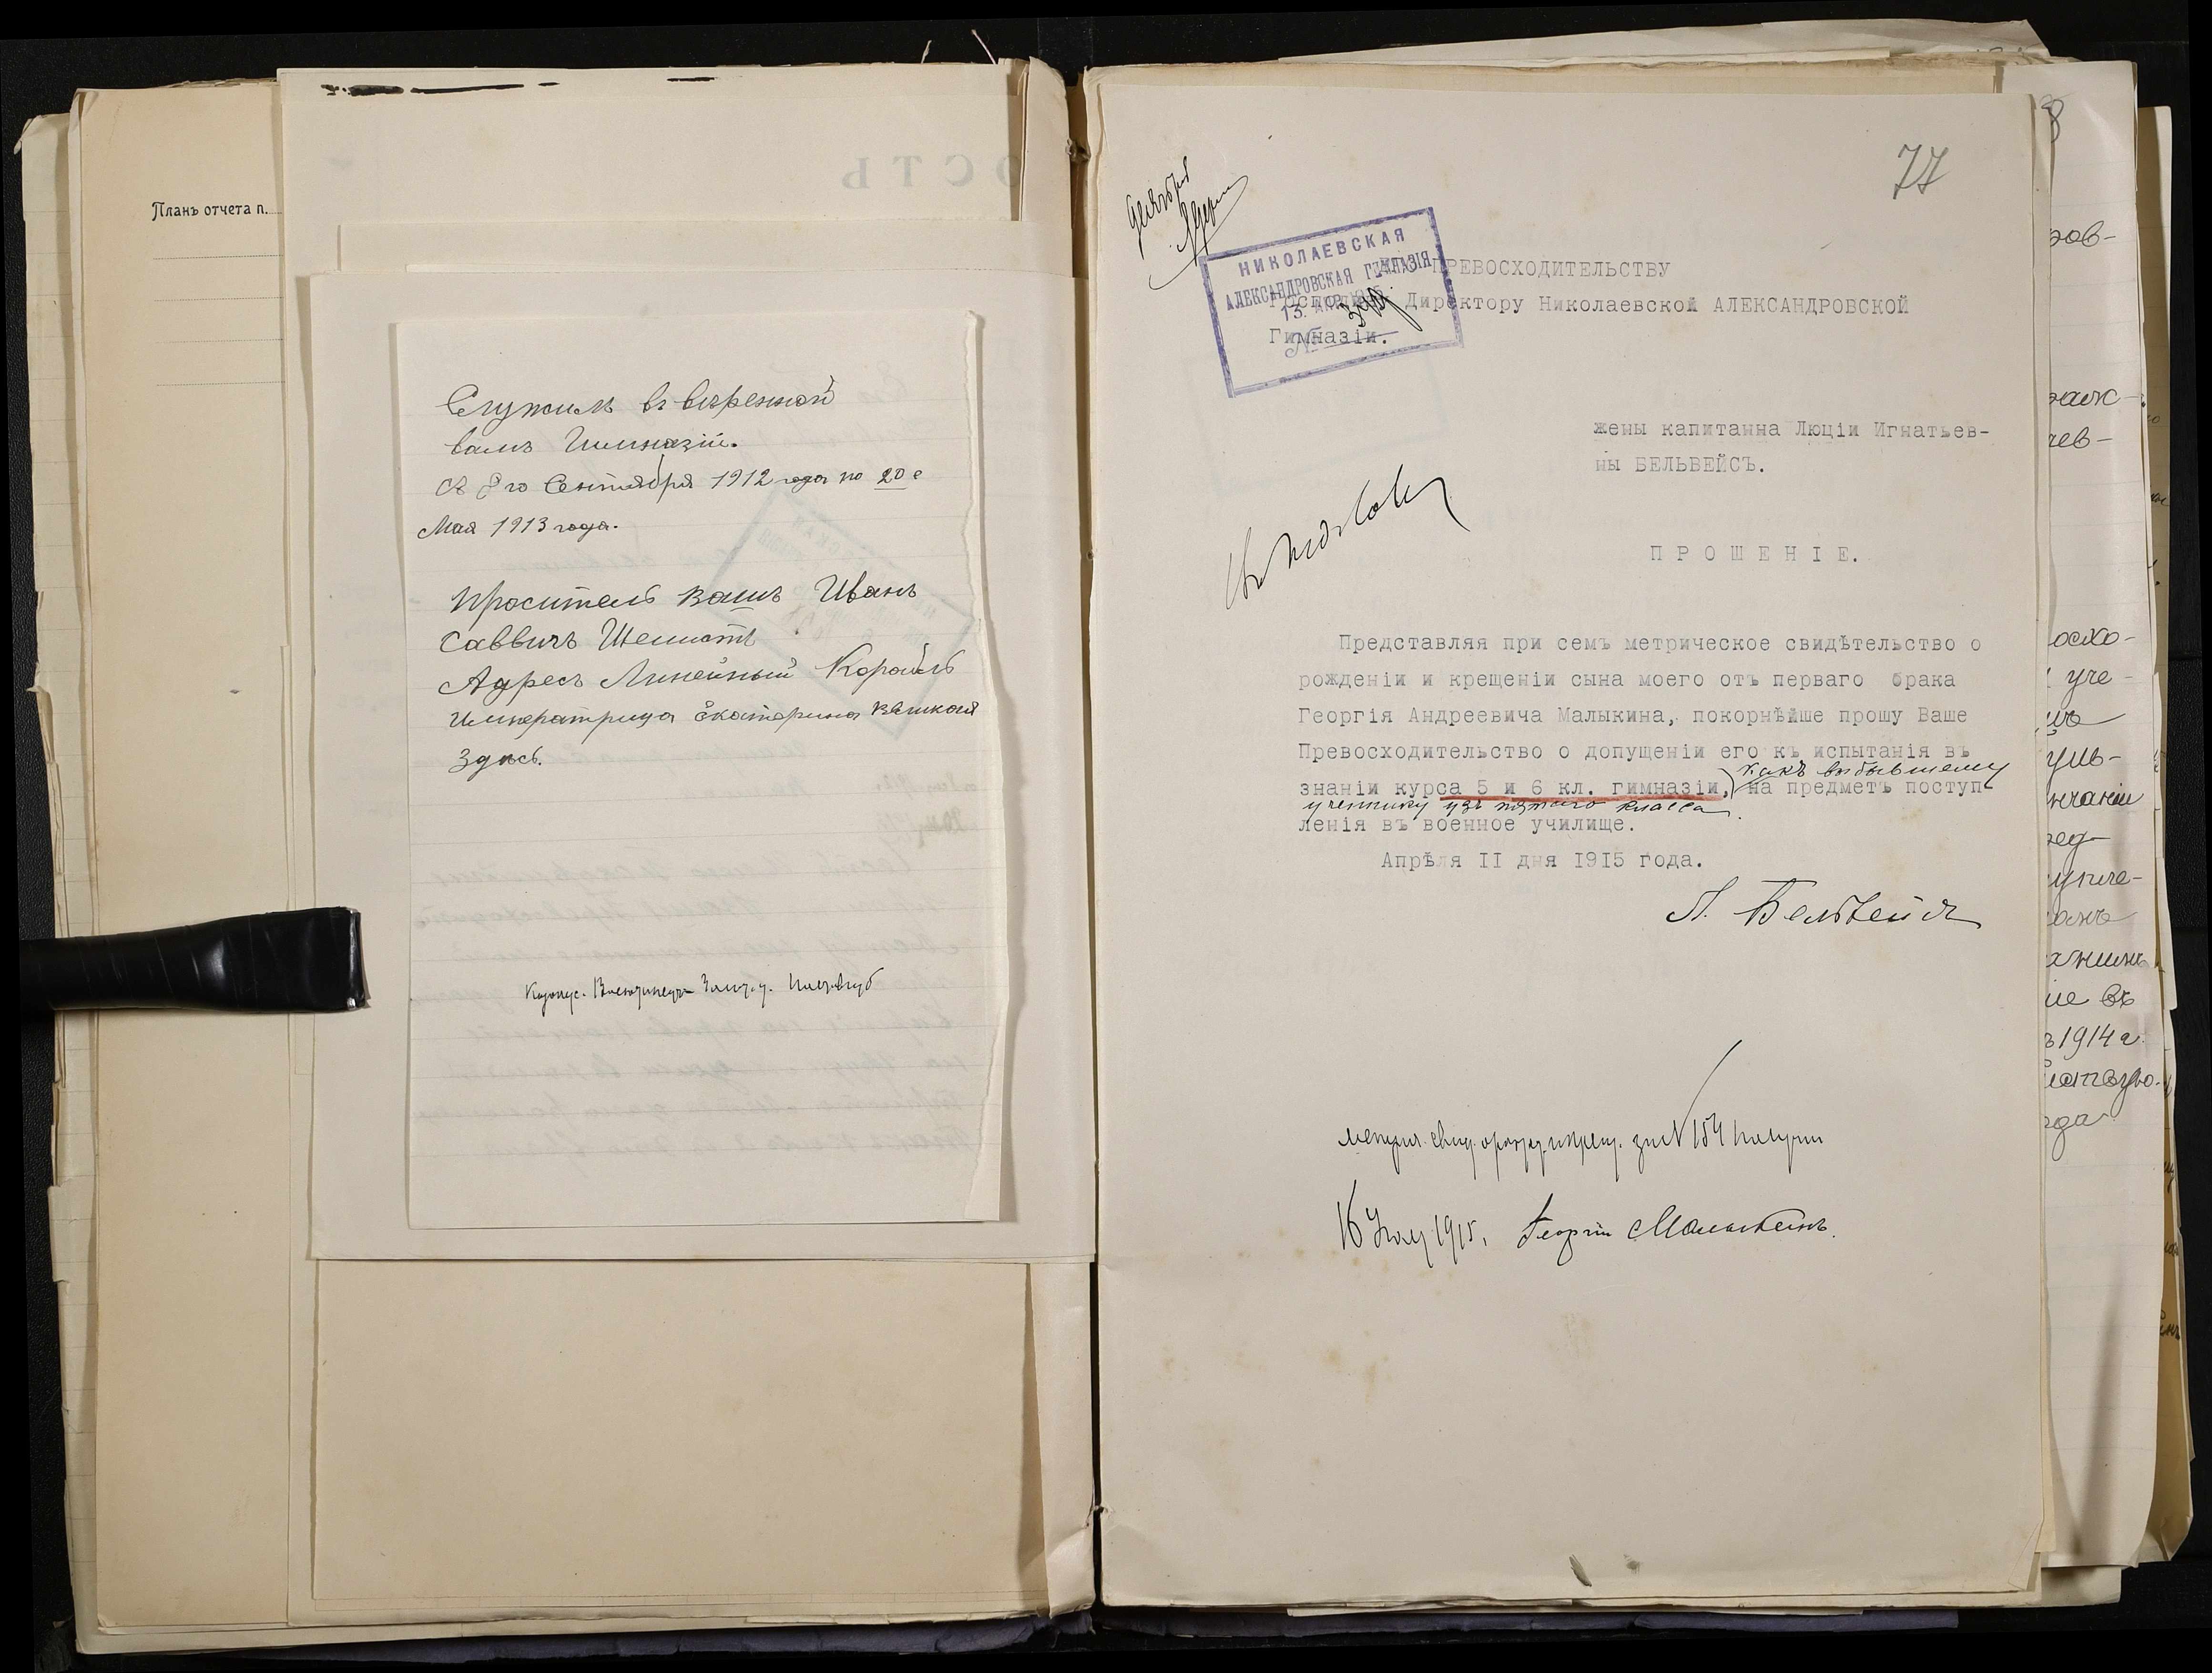 Планъ отчета п.
ОСТЬ
Служилъ въ ввѣренной
вамъ Гимназіи.
Съ 8го Сентября 1912 года по 20 е
Мая 1913 года.
Проситель вашъ Иванъ
Саввичъ
Адресъ Линейный Корабль
Императрица Екатерина Великая
Здѣсь.
77
НИКОЛАЕВСКАЯ
АЛЕКСАНДРОВСКАЯ ГИМНАЗІЯ
13
№
ПРЕВОСХОДИТЕЛЬСТВУ
Господину Директору Николаевской АЛЕКСАНДРОВСКОЙ
Гимназіи.
жены капитанна Люціи Игнатьев-
ны БЕЛЬВЕЙСЪ.
ПРОШЕНІЕ.
Представляя при семъ метрическое свидѣтельство о
рожденіи и крещеніи сына моего отъ перваго брака
Георгія Андреевича Малыкина, покорнѣйше прошу Ваше
Превосходительство о допущеніи его къ испытанія въ
какъ выбывшему
знаніи курса 5 и 6 кл. гимназіи, на предметъ поступ
ученику изъ пятаго класса
ленія въ военное училище.
Апрѣля II дня 1915 года.
Л. Бельвейсъ
метрич. свид. о рожд. и крещ. за № 154 получилъ
16 1915, Георгій Малыкинъ.
ров-
нев-
осхо-
уче-
уль-
нчаніи
ред-
ie въ
1914 г.